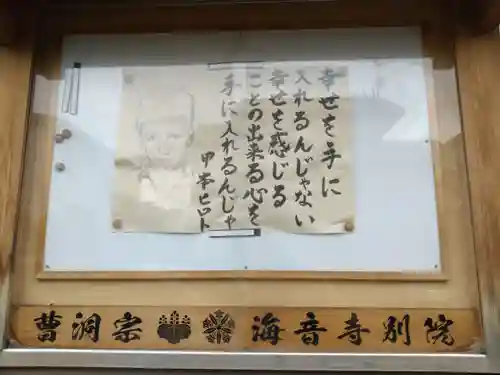 幸せを手に
入れるんじゃない
幸せを感じる
ことの出来る心を
手に入れるんじゃ
甲本ヒロト
曹洞宗 海音寺別院